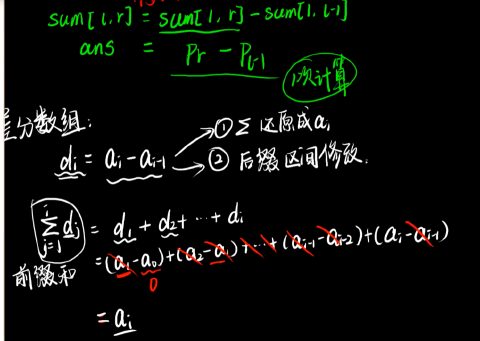 sum[l,r] = sum[1,r] - sum[1,l-1]
ans = Pr - Pl-1
1次计算
差分数组:
di = ai - ai-1
① Σ 还原成ai
② 后缀区间修改.
i
Σ dj = d1 + d2 + ... + di
j=1
前缀和
= (a1 - a0) + (a2 - a1) + ... + (ai-1 - ai-2) + (ai - ai-1)
0
= ai